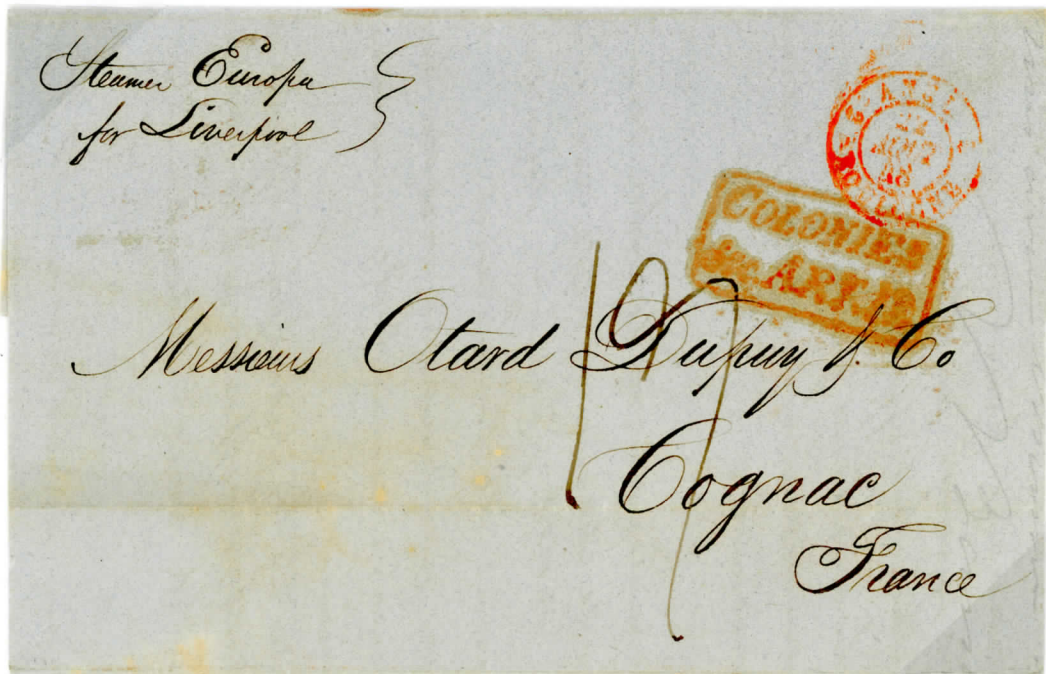 Steamer Europa
for Liverpool
COLONIES
&c. ART.18
19
Messieurs Otard Dupuy & Co
Cognac
France